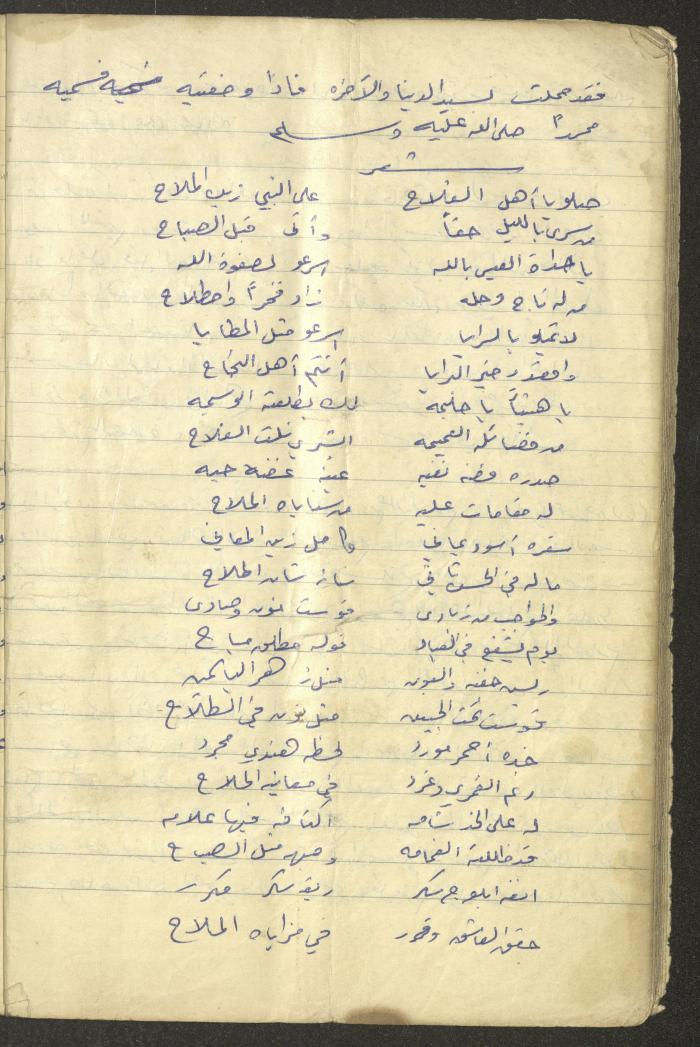 فقد حملت لسيد الدنيا والآخرة فاذا وضعتيه فسميه
محمداً صلى الله عليه وسلم
شعر
صلو يا أهل الفلاح على النبي زين الملاح
من سرى بالليل حقاً وأتى قبل الصباح
يا حداة العيس بالله اسرعو لصفوة الله
من له تاج وحله زاد فخراً واصطلاح
لا تميلو يا لسرايا اسرعو مثل المطايا
واقصدو خير البرايا أنتم أهل النجاح
يا هنيئاً يا حليمه لك بطلعته الوسيمه
من فضائله العميمه ابشري نلت الفلاح
صدره فضه نقيه عينه غضة حيه
له مقامات عليه من سناياه الملاح
شعره أسود يماني كامل زين المعاني
ما له في الحسن ثاني شانه شان الملاح
والحواجب من قوست نون وصادى
يوم يشفع في العباد قوله مطلق مباح
جفنه والعيون مثل زهر الياسمين
قوست تحت الجبين مثل نون في
خده أحمر مورد لحظه هندي مجرد
رنم القمري وغرد في معانيه الملاح
له على الخد شامه اكتافه فيها علامه
قد ظللته الغمامه وجهه مثل الصباح
انفه ابلوج سكر ريقه سكر مكرر
حقق العاشق وقرر في مزاياه الملاح